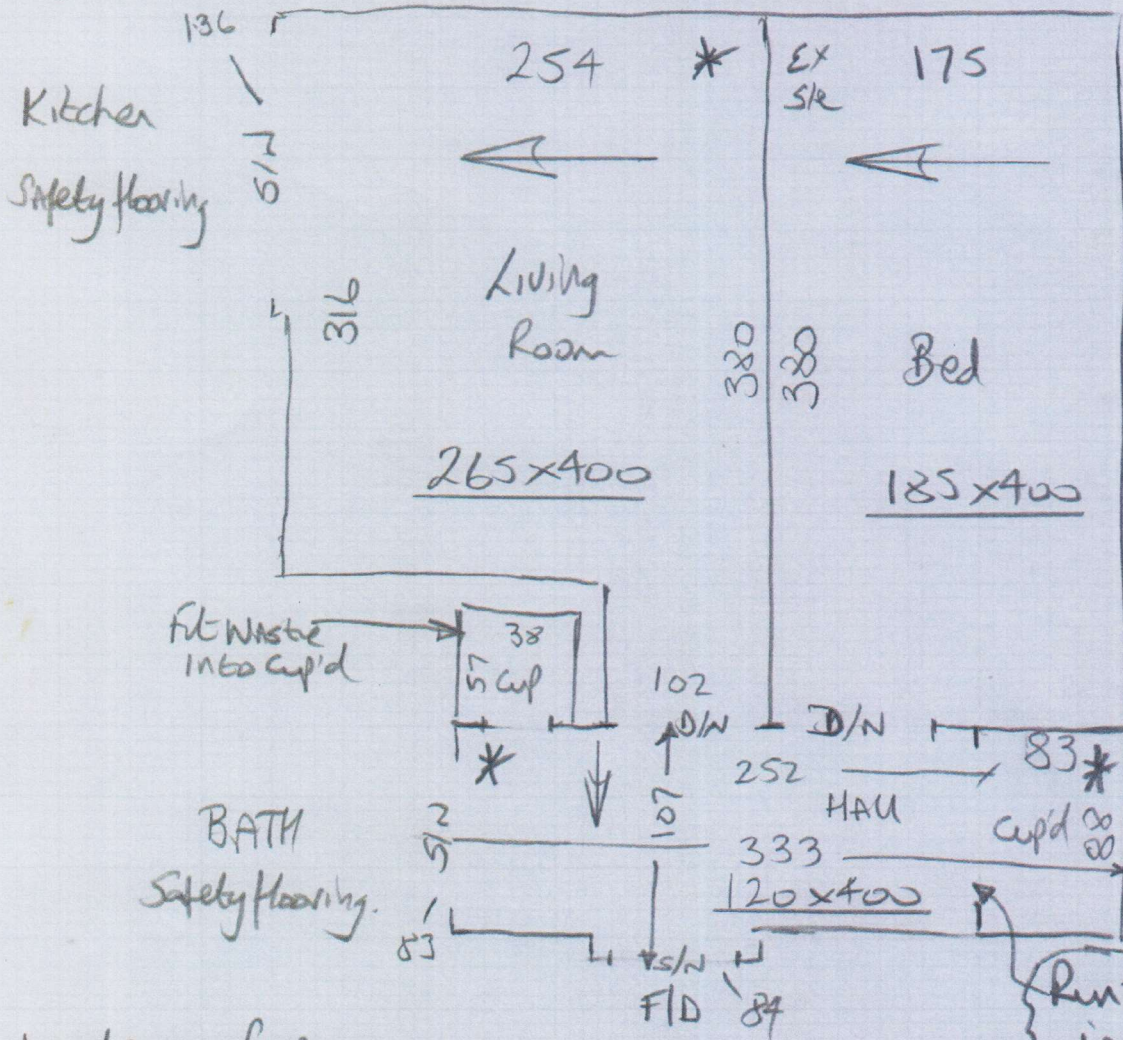 136
254
*
Ex
S/R
175
Kitchen
S/N
Safety flooring
316
Living
Room
380
380
Bed
265x400
185x400
Fit Waste
Into Cup'd
38
57
Cup
102
D/N
D/N
83
*
*
252
HALL
107
Cup'd
88
BATH
S/N
333
Safety flooring.
120x400
83
S/N
F/D
84
Run